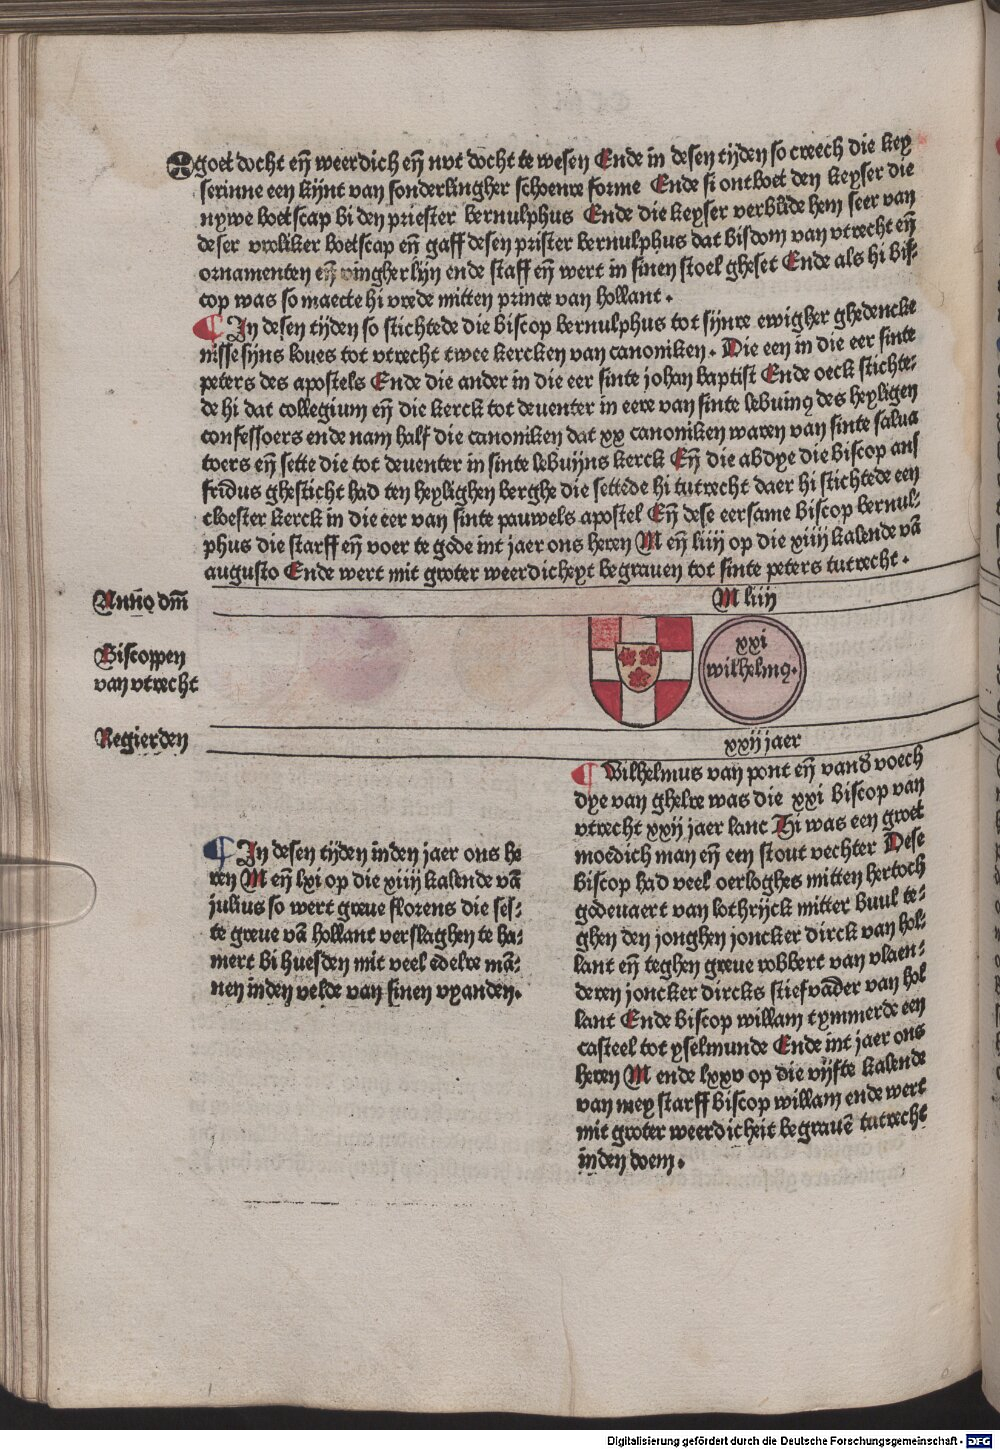 goet docht eñ weerdich eñ nut docht te wesen Ende in desen tijden so creech die key
serinne een kijnt van sonderlingher schoenre forme Ende si ontboet den keyser die
nywe boetscap bi den priester bernulphus Ende die keyser verblide hem seer van
deser vroliker boetscap eñ gaff desen prister bernulphus dat bisdom van vtrecht eñ
ornamenten eñ vingherlijn ende staff eñ wert in sinen stoel gheset Ende als hi bis⸗
cop was so maecte hi vrede mitten prince van hollant.
¶ In desen tijden so stichtede die biscop bernulphus tot sijnre ewigher ghedencke
nisse sijns loues tot vtrecht twee kercken van canoniken. Die een in die eer sinte
peters des apostels Ende die ander in die eer sinte johan baptist Ende oeck stichte⸗
de hi dat collegium eñ die kerck tot deuenter in eere van sinte lebuinꝰ des heyligen
confessoers ende nam half die canoniken dat xx canoniken waren van sinte salua
toers eñ sette die tot deuenter in sinte lebuijns kerck Eñ die abdye die biscop ans
fridus ghesticht had ten heylighen berghe die settede hi tutrecht daer hi stichtede een
cloester kerck in die eer van sinte pauwels apostel Eñ dese eersame biscop bernul⸗
phus die starff eñ voer te gode int jaer ons heren M eñ liiij op die xiiij kalende vā
augusto Ende wert mit groter weerdicheyt begrauen tot sinte peters tutrecht.
Anño dm̄
M liiij
Biscoppen
van vtrecht
xxi
wilhelmꝰ.
Regierden
xxij jaer
¶ Wilhelmus van pont eñ vand voech
dye van ghelre was die xxi biscop van
vtrecht xxij jaer lanc Hi was een groet
moedich man eñ een stout vechter Dese
biscop had veel oerloghes mitten hertoch
godeuaert van lothrijck mitter buul te⸗
ghen den jonghen joncker dirck van hol⸗
lant eñ teghen greue robbert van vlaen⸗
deren joncker dircks stiefvader van hol
lant Ende biscop willam tymmerde een
casteel tot yselmunde Ende int jaer ons
heren M ende lxxv op die vijfte kalende
van mey starff biscop willam ende wert
mit groter weerdicheit begrauē tutrecht
inden doem.
¶ In desen tijden inden jaer ons he
ren M eñ lxi op die xiiij kalende vā
julius so wert greue florens die ses⸗
te greue vā hollant verslaghen te ha⸗
mert bi huesden mit veel edelre mā⸗
nen inden velde van sinen vyanden.
Digitalisierung gefördert durch die Deutsche Forschungsgemeinschaft - DFG